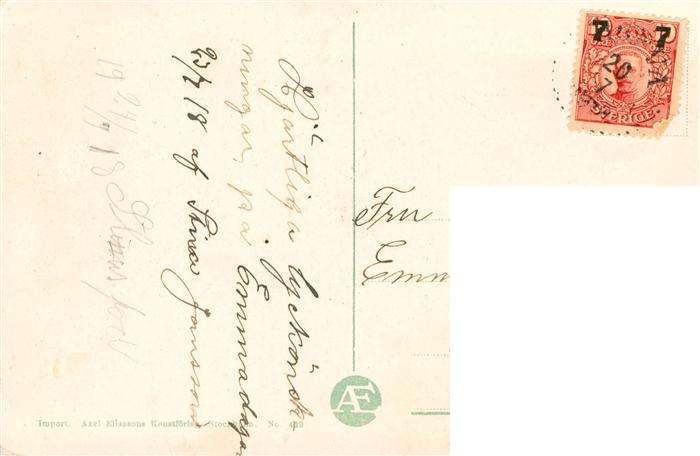 Hjärtliga lyckönsk
ningar, på Emmadagen
23/7 18 af Stina Jansson
19 24/7 18
Fru
Emm
7 7
SVERIGE
20
7
Æ
Import. Axel Eliassons Konstförlag Stockholm. No.